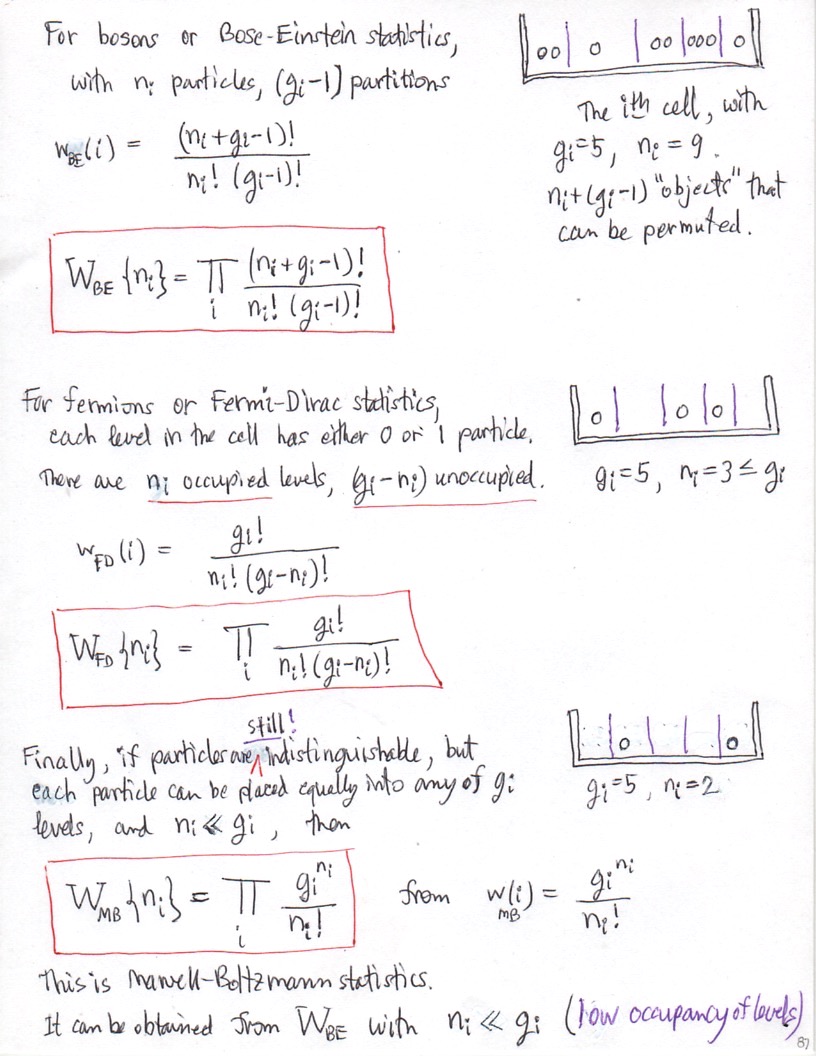 For bosons or Bose-Einstein statistics,
with nᵢ particles, (gᵢ-1) partitions
w_BE(i) = (nᵢ+gᵢ-1)! / nᵢ! (gᵢ-1)!
The ith cell, with
gᵢ=5, nᵢ = 9.
nᵢ+(gᵢ-1) "objects" that
can be permuted.
W_BE {nᵢ} = ∏ᵢ (nᵢ+gᵢ-1)! / nᵢ! (gᵢ-1)!
For fermions or Fermi-Dirac statistics,
each level in the cell has either 0 or 1 particle.
There are nᵢ occupied levels, (gᵢ-nᵢ) unoccupied.
gᵢ=5, nᵢ=3 ≤ gᵢ
w_FD(i) = gᵢ! / nᵢ! (gᵢ-nᵢ)!
W_FD {nᵢ} = ∏ᵢ gᵢ! / nᵢ! (gᵢ-nᵢ)!
still!
Finally, if particles are ∧ indistinguishable, but
each particle can be placed equally into any of gᵢ
levels, and nᵢ ≪ gᵢ, then
gᵢ=5, nᵢ=2
W_MB {nᵢ} = ∏ᵢ gᵢ^nᵢ / nᵢ! from w_MB(i) = gᵢ^nᵢ / nᵢ!
This is Maxwell-Boltzmann statistics.
It can be obtained from W_BE with nᵢ ≪ gᵢ (low occupancy of levels)
87